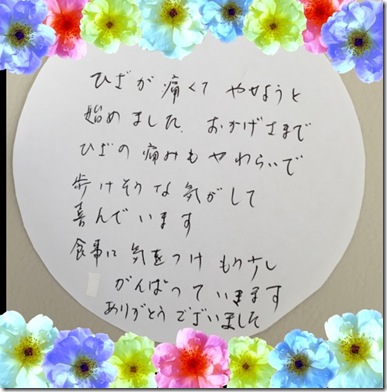 ひざが痛くて やせようと
始めました。おかげさまで
ひざの痛みもやわらいで
歩けそうな気がして
喜んでいます
食事に気をつけ もう少し
がんばっていきます
ありがとうございました